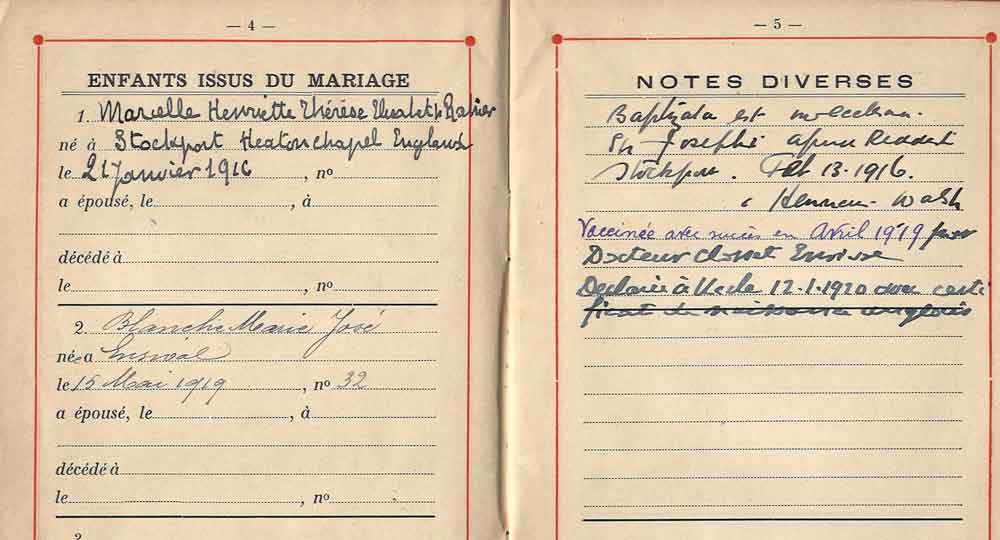 — 4 —
ENFANTS ISSUS DU MARIAGE
1. Marcelle Henriette Thérèse
né à Stockport Heaton chapel England
le 21 Janvier 1916, nº
a épousé, le, à
décédé à
le, nº
2. Blanche Marie José
née a Ensival
le 15 Mai 1919, nº 32
a épousé, le, à
décédé à
le, nº
— 5 —
NOTES DIVERSES
Baptizata est in
Josephi apud Reddish
Stockport. Feb 13. 1916.
Walsh
Vaccinée avec succès en Avril 1919 par
Docteur
Declarée à 12-1-1920 avec certi
ficat de naissance anglais